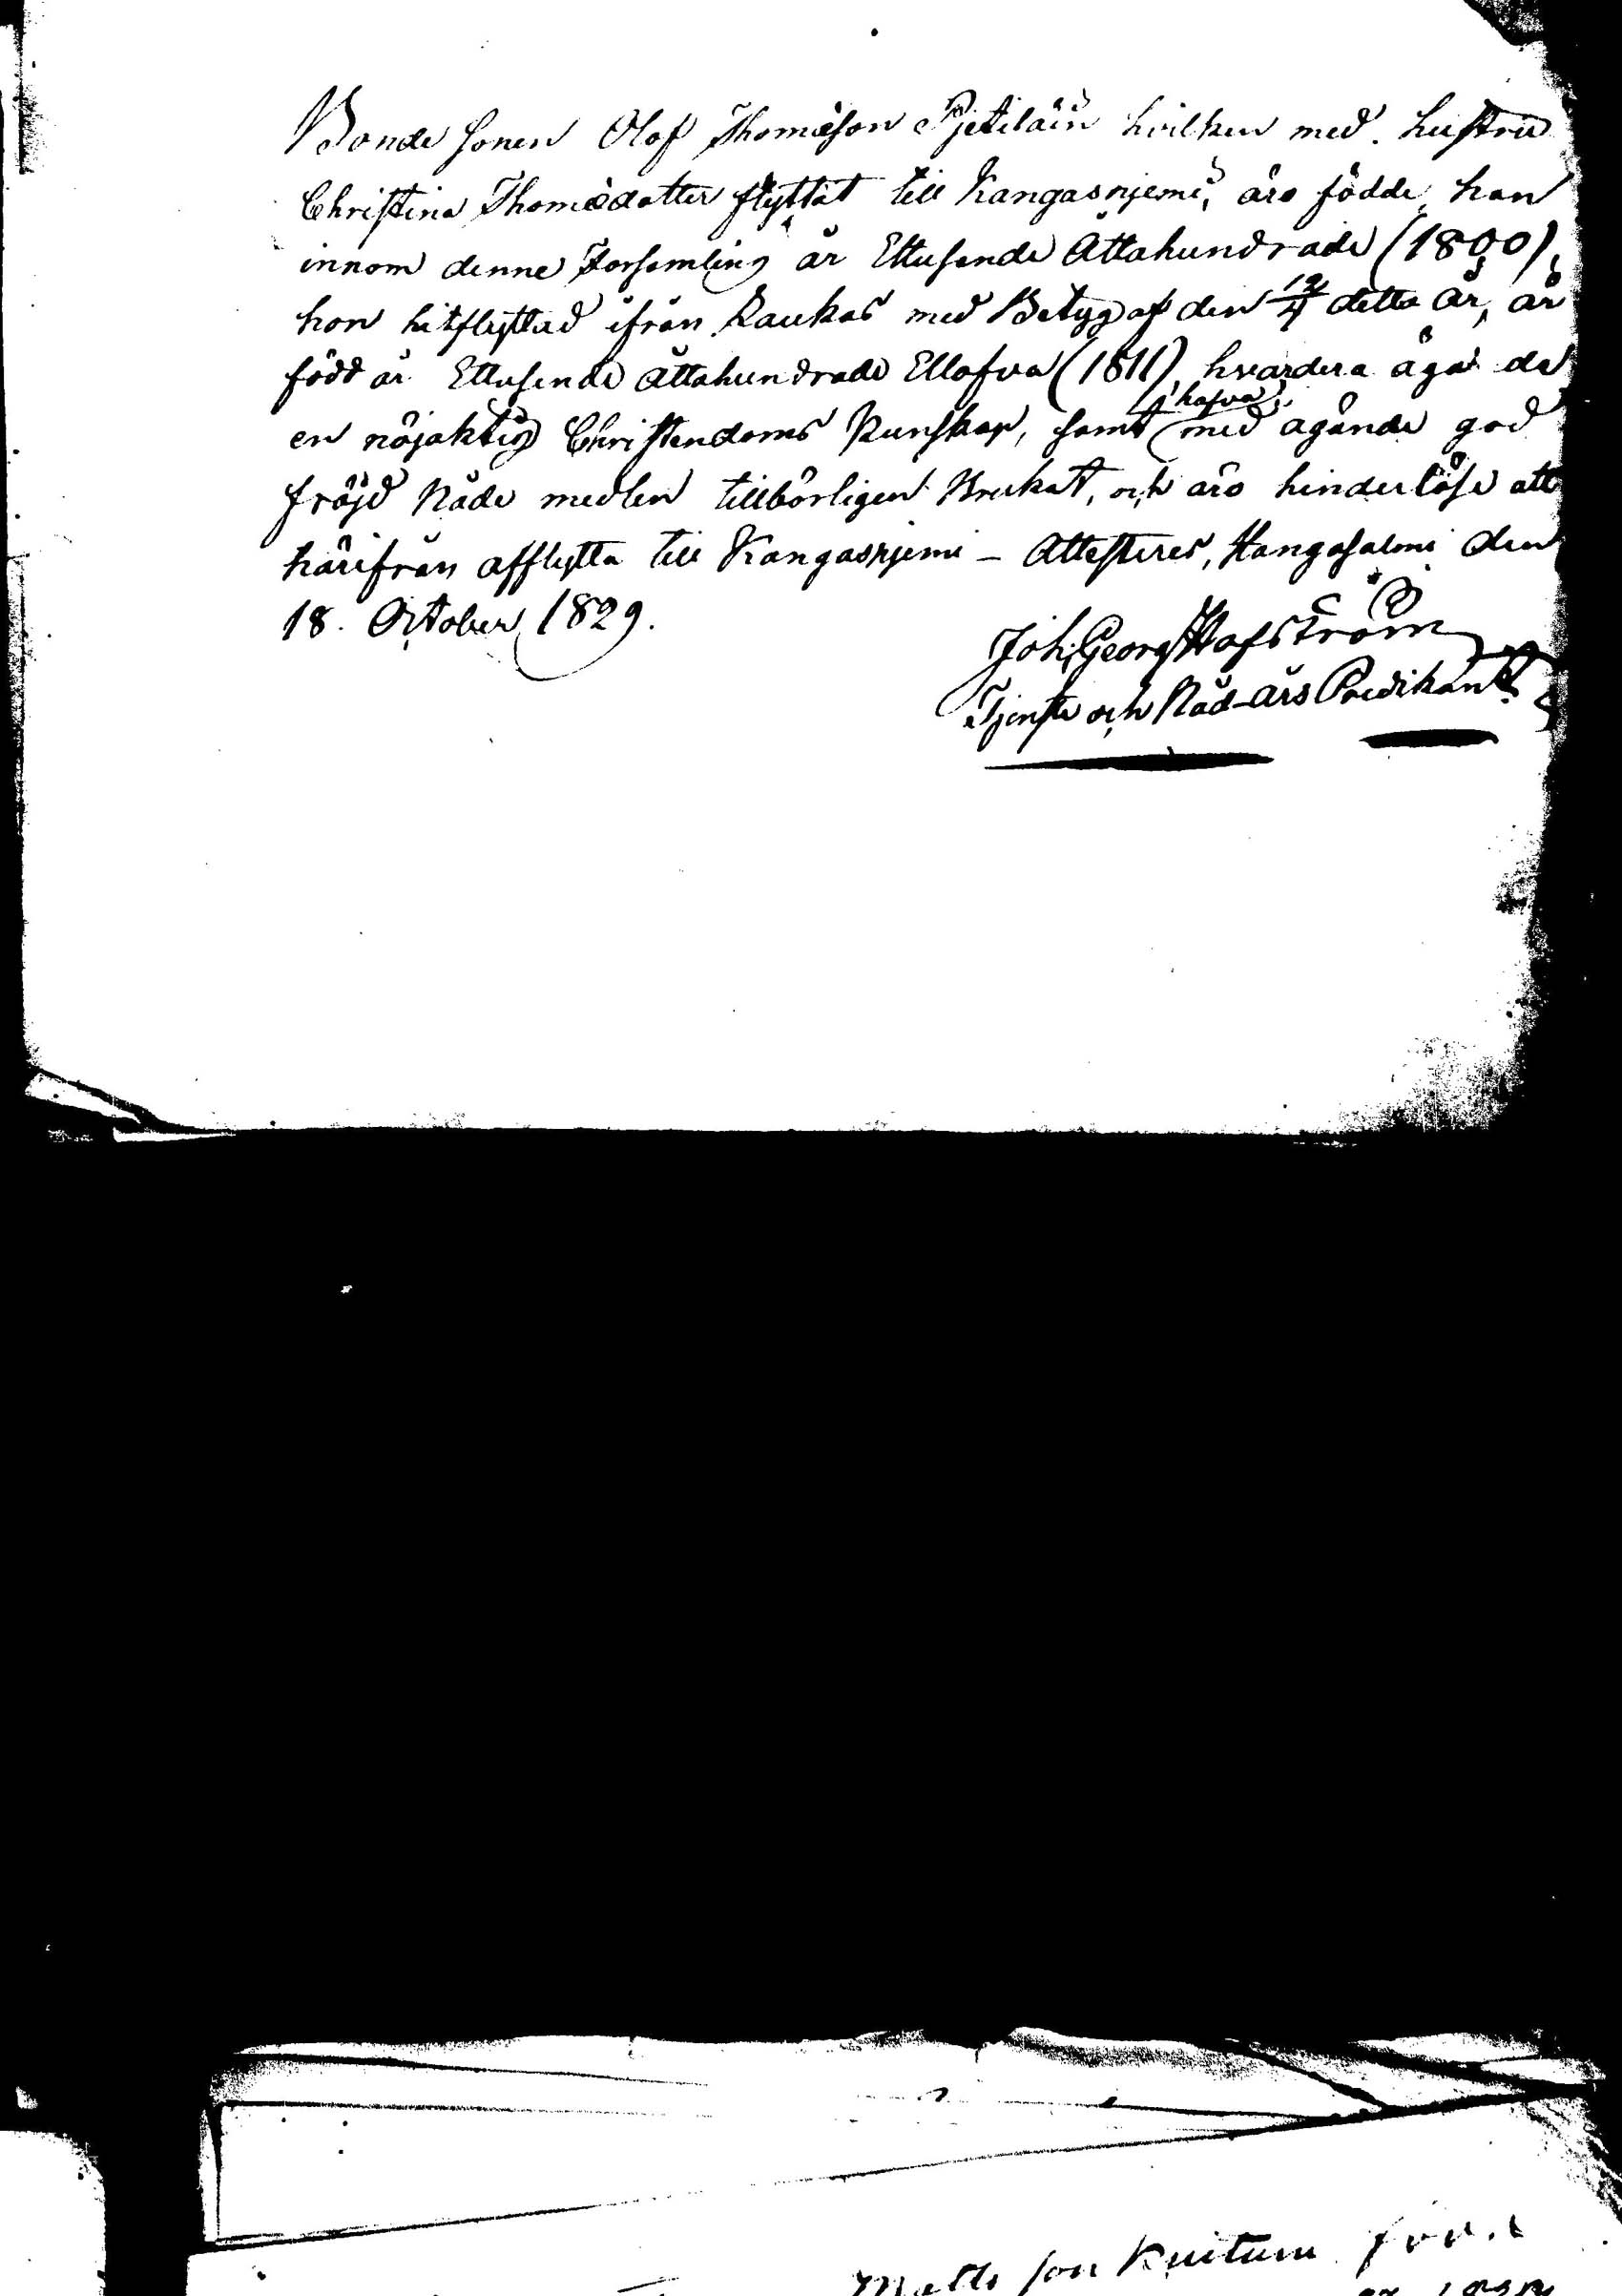 Bonde sonen Olof Thomæson Pjetiläin hvilken med hustru
Christina Thomædotter flyttat till Kangasnjemi, äro födde, han
innom denne Församling år Ettusende Åttahundrade (1800),
hon hitflyttad ifrån Laukas med Betyg af den 12/4 detta År, är
född år Ettusende Åttahundrade Ellofva (1811), hvardera äga de
en nöjaktig Christendoms Kunskap, samt hafva med ägande god
fröjd Nåde medlen tillbörligen Brukat, och äro hinderlöse att
härifrån afflytta till Kangasnjemi – Attesteres, Hangasalmi den
18. October 1829.
Joh. Georg Hofström
Tjenste och Nåd-års Predikant
Matts son Kuitunen